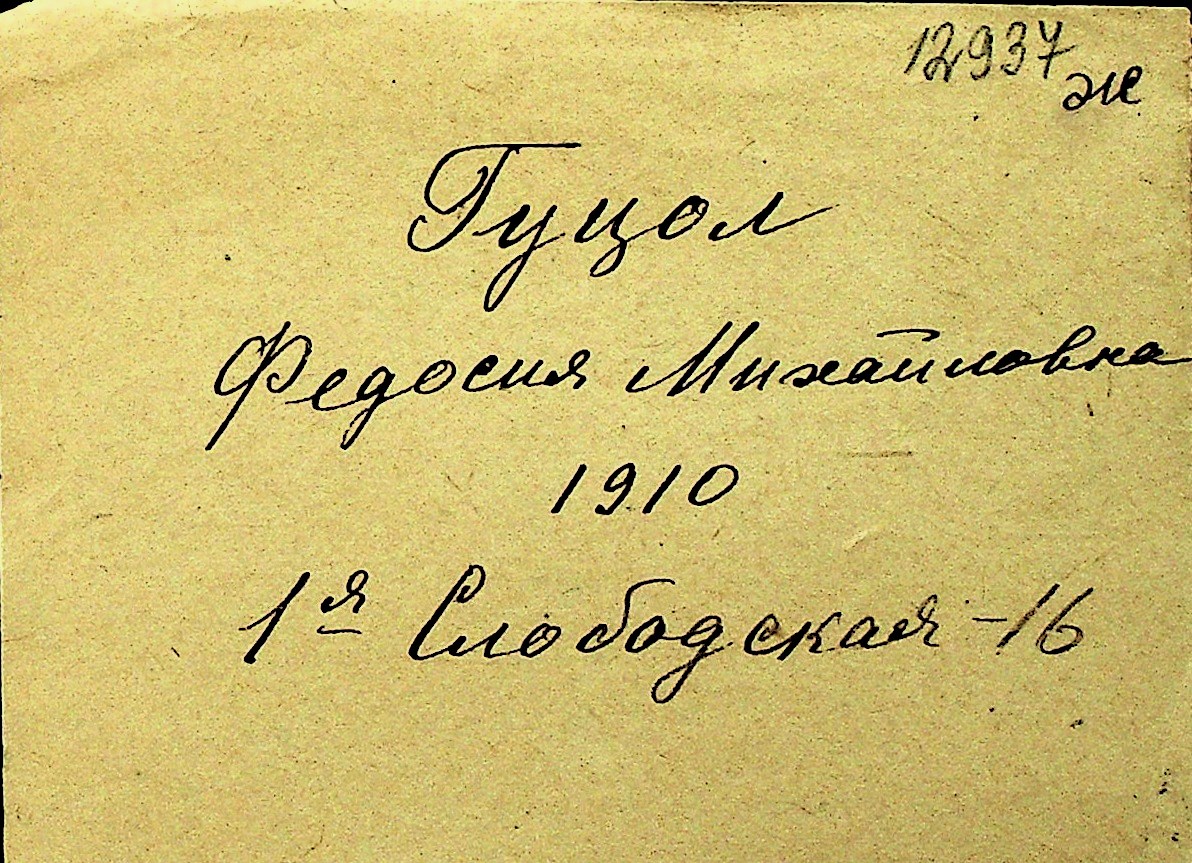 12937 ж
Гуцол
Федосия Михайловна
1910
1я Слободская - 16